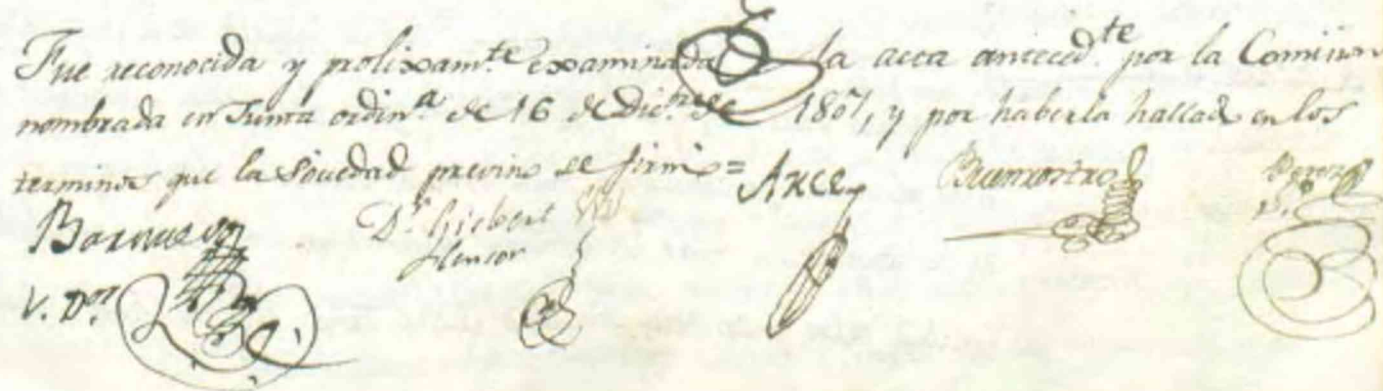 Fue reconocida y prolixam.te examinada la acta anteced.te por la Comision
nombrada en Junta ordin.a de 16 de Dic.re de 1807, y por haberla hallado en los
terminos que la Sociedad previno se firmó = Arce
Buenrostro
D.r Gisbert
V. D.or